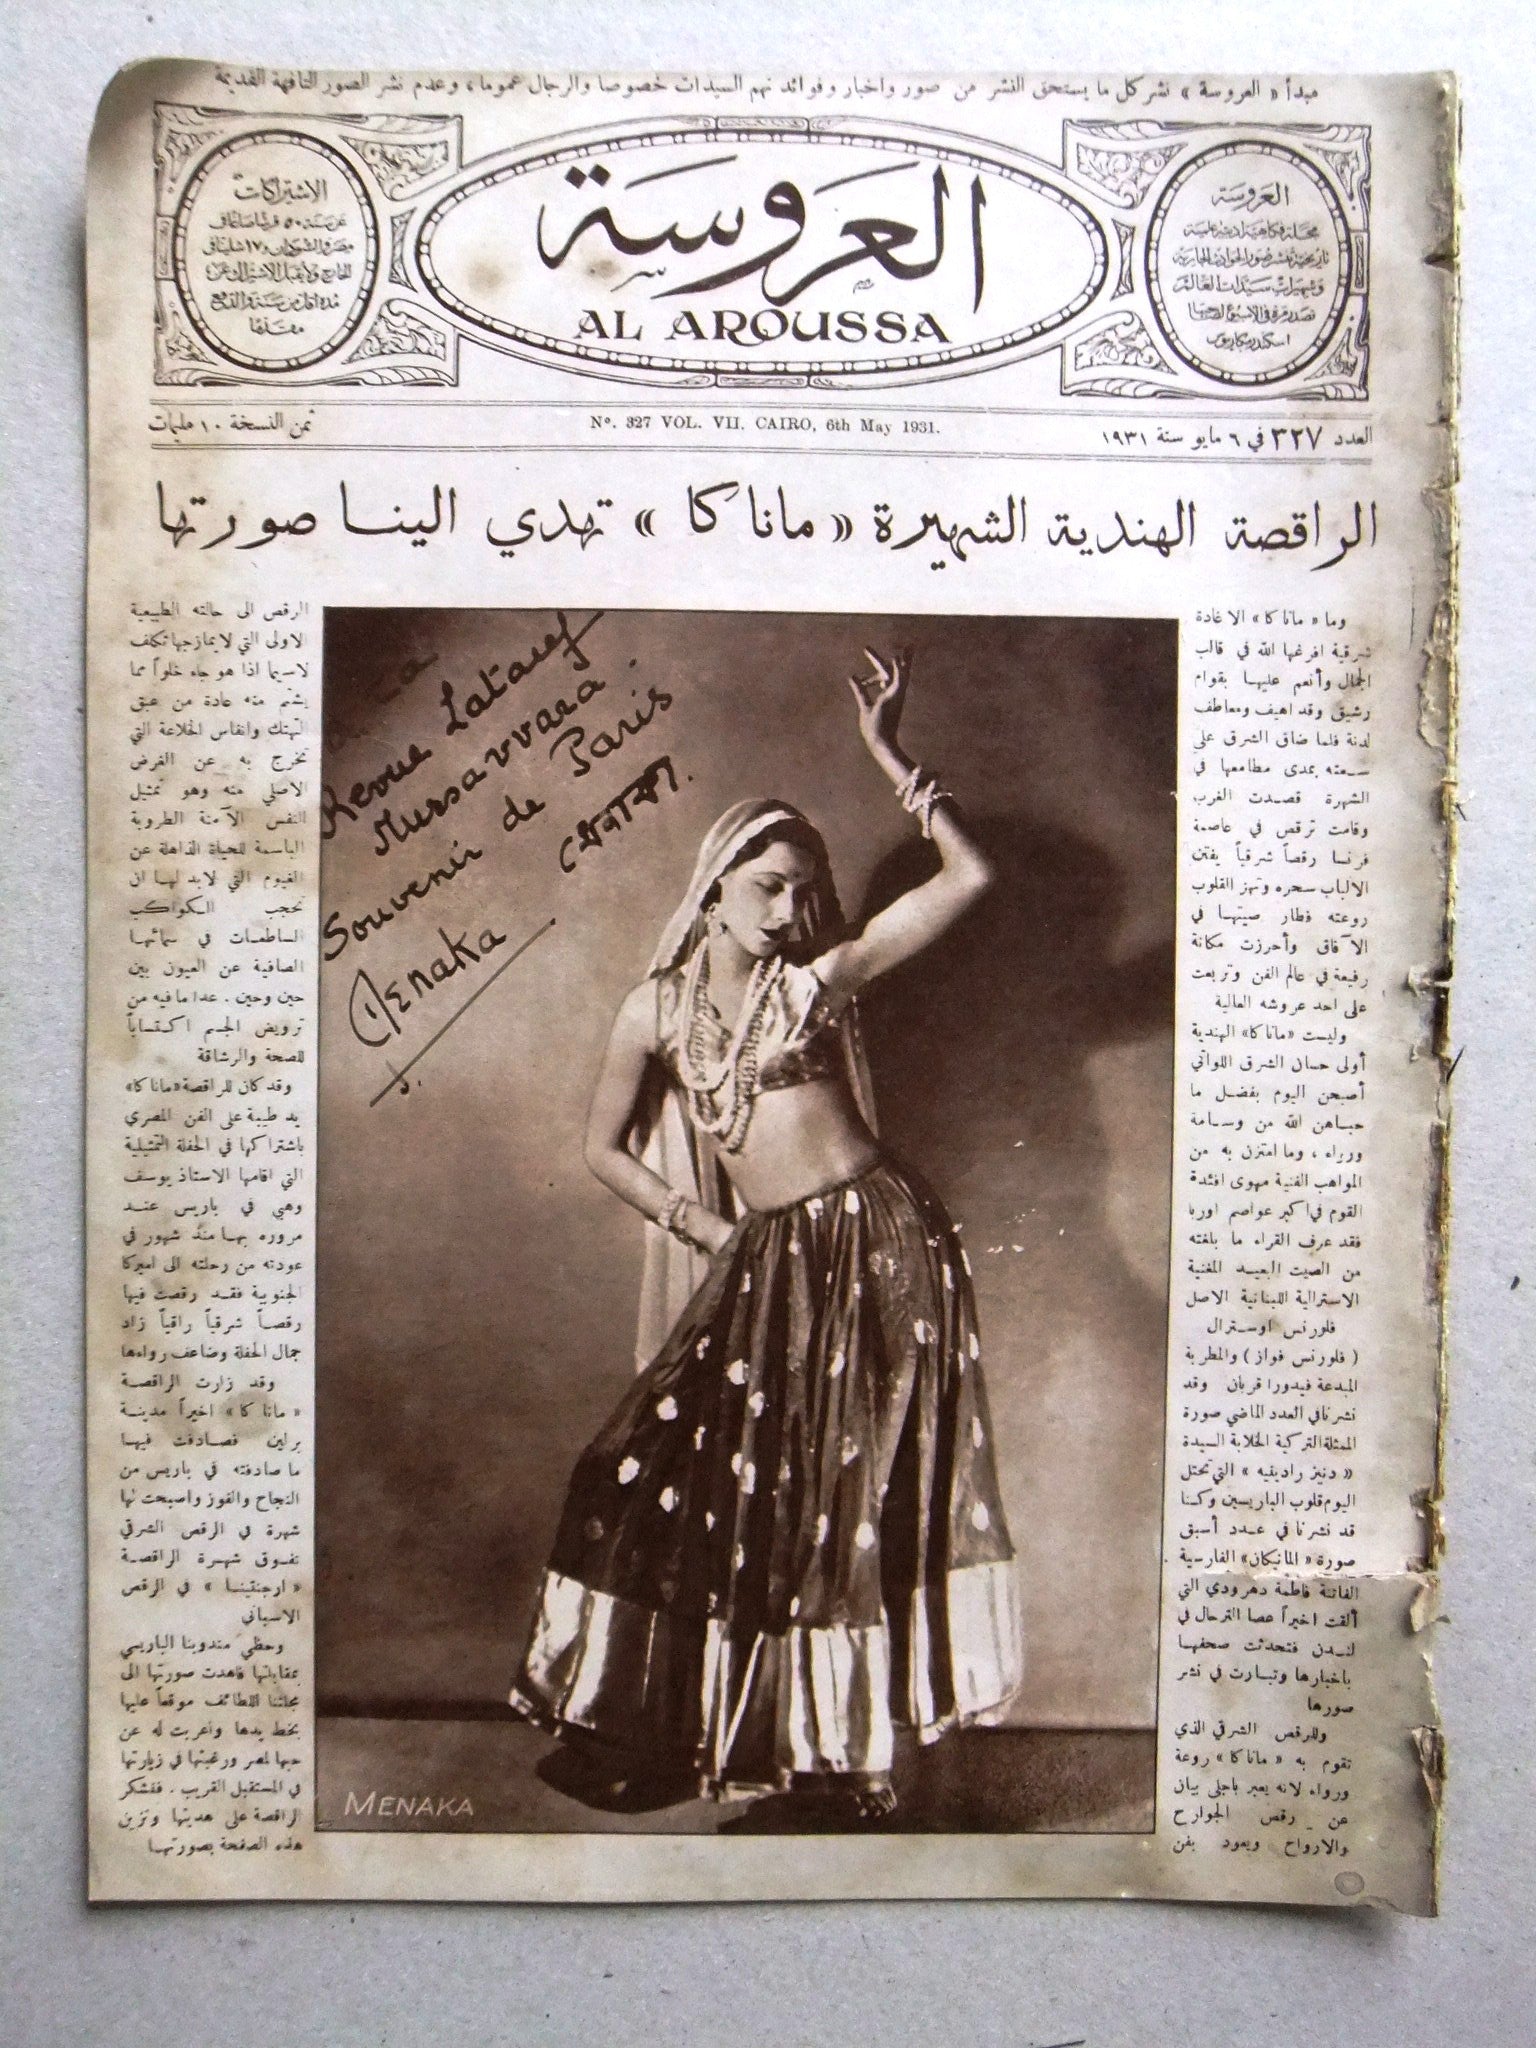 مبدأ « العروسة » نشر كل ما يستحق النشر من صور واخبار وفوائد تهم السيدات خصوصا والرجال عموما، وعدم نشر الصور التافهة القديمة
العروسة
مجلة فكاهية ادبية علمية
تاريخية تنشر صور الحوادث الجارية
وشهيرات سيدات العالم
تصدر مرة في الاسبوع لصاحبها
اسكندر مكاريوس
العروسة
AL AROUSSA
الاشتراكات
عن سنة ٥٠ قرشا صاغا في
مصر والسودان و١٧ شلنا في
الخارج ولا يقبل الاشتراك عن
مدة اقل من سنة والدفع
مقدما
العدد ٣٢٧ في ٦ مايو سنة ١٩٣١
Nº. 327 VOL. VII. CAIRO, 6th May 1931.
ثمن النسخة ١٠ مليمات
الراقصة الهندية الشهيرة « ماناكا » تهدي الينا صورتها
وما « ماناكا » الا غادة
شرقية افرغها الله في قالب
الجمال وأنعم عليها بقوام
رشيق وقد اهيف ومعاطف
لدنة فلما ضاق الشرق على
سعته بمدى مطامعها في
الشهرة قصدت الغرب
وقامت ترقص في عاصمة
فرنسا رقصاً شرقياً يفتن
الالباب سحره وتهز القلوب
روعته فطار صيتها في
الآفاق وأحرزت مكانة
رفيعة في عالم الفن وتربعت
على احد عروشه العالية
وليست «ماناكا» الهندية
أولى حسان الشرق اللواتي
أصبحن اليوم بفضل ما
حباهن الله من وسامة
ورواء ، وما امتزن به من
المواهب الفنية مهوى افئدة
القوم في اكبر عواصم اوربا
فقد عرف القراء ما بلغته
من الصيت البعيد المغنية
الاسترالية اللبنانية الاصل
فلورنس اوسترال
( فلورنس فواز ) والمطربة
المبدعة فيدورا قربان وقد
نشرنا في العدد الماضي صورة
الممثلة التركية الخلابة السيدة
« دنيز رادينيه » التي تحتل
اليوم قلوب الباريسين وكنا
قد نشرنا في عدد أسبق
صورة «المانيكان» الفارسية
الفاتنة فاطمة دهرودي التي
ألقت اخيراً عصا الترحال في
لندن فتحدثت صحفها
باخبارها وتبارت في نشر
صورها
وللرقص الشرقي الذي
تقوم به « ماناكا » روعة
ورواء لانه يعبر باجلى بيان
عن رقص الجوارح
والارواح ويعود بفن
Revue Lataief
Mursavvara.
Souvenir de Paris
Menaka
MENAKA
الرقص الى حالته الطبيعية
الاولى التي لا يمازجها تكلف
لاسيما اذا هو جاء خلواً مما
يشتم منه عادة من عبق
التهتك وانفاس الخلاعة التي
تخرج به عن الغرض
الاصلي منه وهو تمثيل
النفس الآمنة الطروبة
الباسمة للحياة الذاهلة عن
الغيوم التي لابد لها ان
تحجب الكواكب
الساطعات في سمائها
الصافية عن العيون بين
حين وحين . عدا ما فيه من
ترويض الجسم اكتساباً
للصحة والرشاقة
وقد كان للراقصة «ماناكا»
يد طيبة على الفن المصري
باشتراكها في الحفلة التمثيلية
التي اقامها الاستاذ يوسف
وهبي في باريس عند
مروره بها منذ شهور في
عودته من رحلته الى اميركا
الجنوبية فقد رقصت فيها
رقصاً شرقياً راقياً زاد
جمال الحفلة وضاعف رواءها
وقد زارت الراقصة
« ماناكا » اخيراً مدينة
برلين فصادفت فيها
ما صادفته في باريس من
النجاح والفوز واصبحت لها
شهرة في الرقص الشرقي
تفوق شهرة الراقصة
« ارجنتينا » في الرقص
الاسباني
وحظي مندوبنا الباريسي
بمقابلتها فاهدت صورتها الى
مجلتنا اللطائف موقعاً عليها
بخط يدها واعربت له عن
حبها لمصر ورغبتها في زيارتها
في المستقبل القريب . فنشكر
الراقصة على هديتها ونزين
هذه الصفحة بصورتها